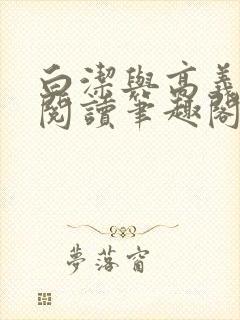 白潔與高義
閱讀筆趣閣
夢落窗